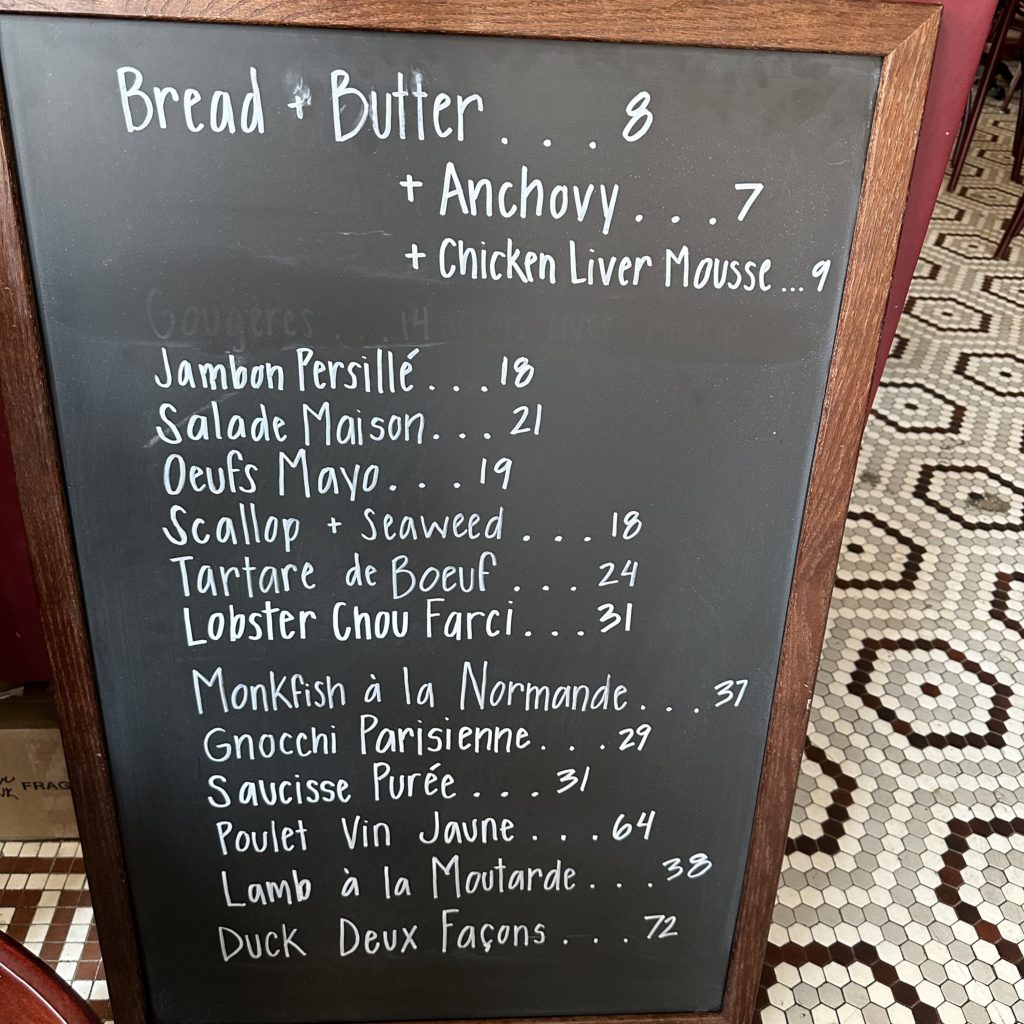 Bread + Butter . . . 8
+ Anchovy . . . 7
+ Chicken Liver Mousse ... 9
Gougères . . . . 14
Jambon Persillé . . . 18
Salade Maison . . . 21
Oeufs Mayo . . . 19
Scallop + Seaweed . . . 18
Tartare de Boeuf . . . 24
Lobster Chou Farci . . . 31
Monkfish à la Normande . . . 37
Gnocchi Parisienne . . . 29
Saucisse Purée . . . 31
Poulet Vin Jaune . . . 64
Lamb à la Moutarde . . . 38
Duck Deux Façons . . . 72
FRAG